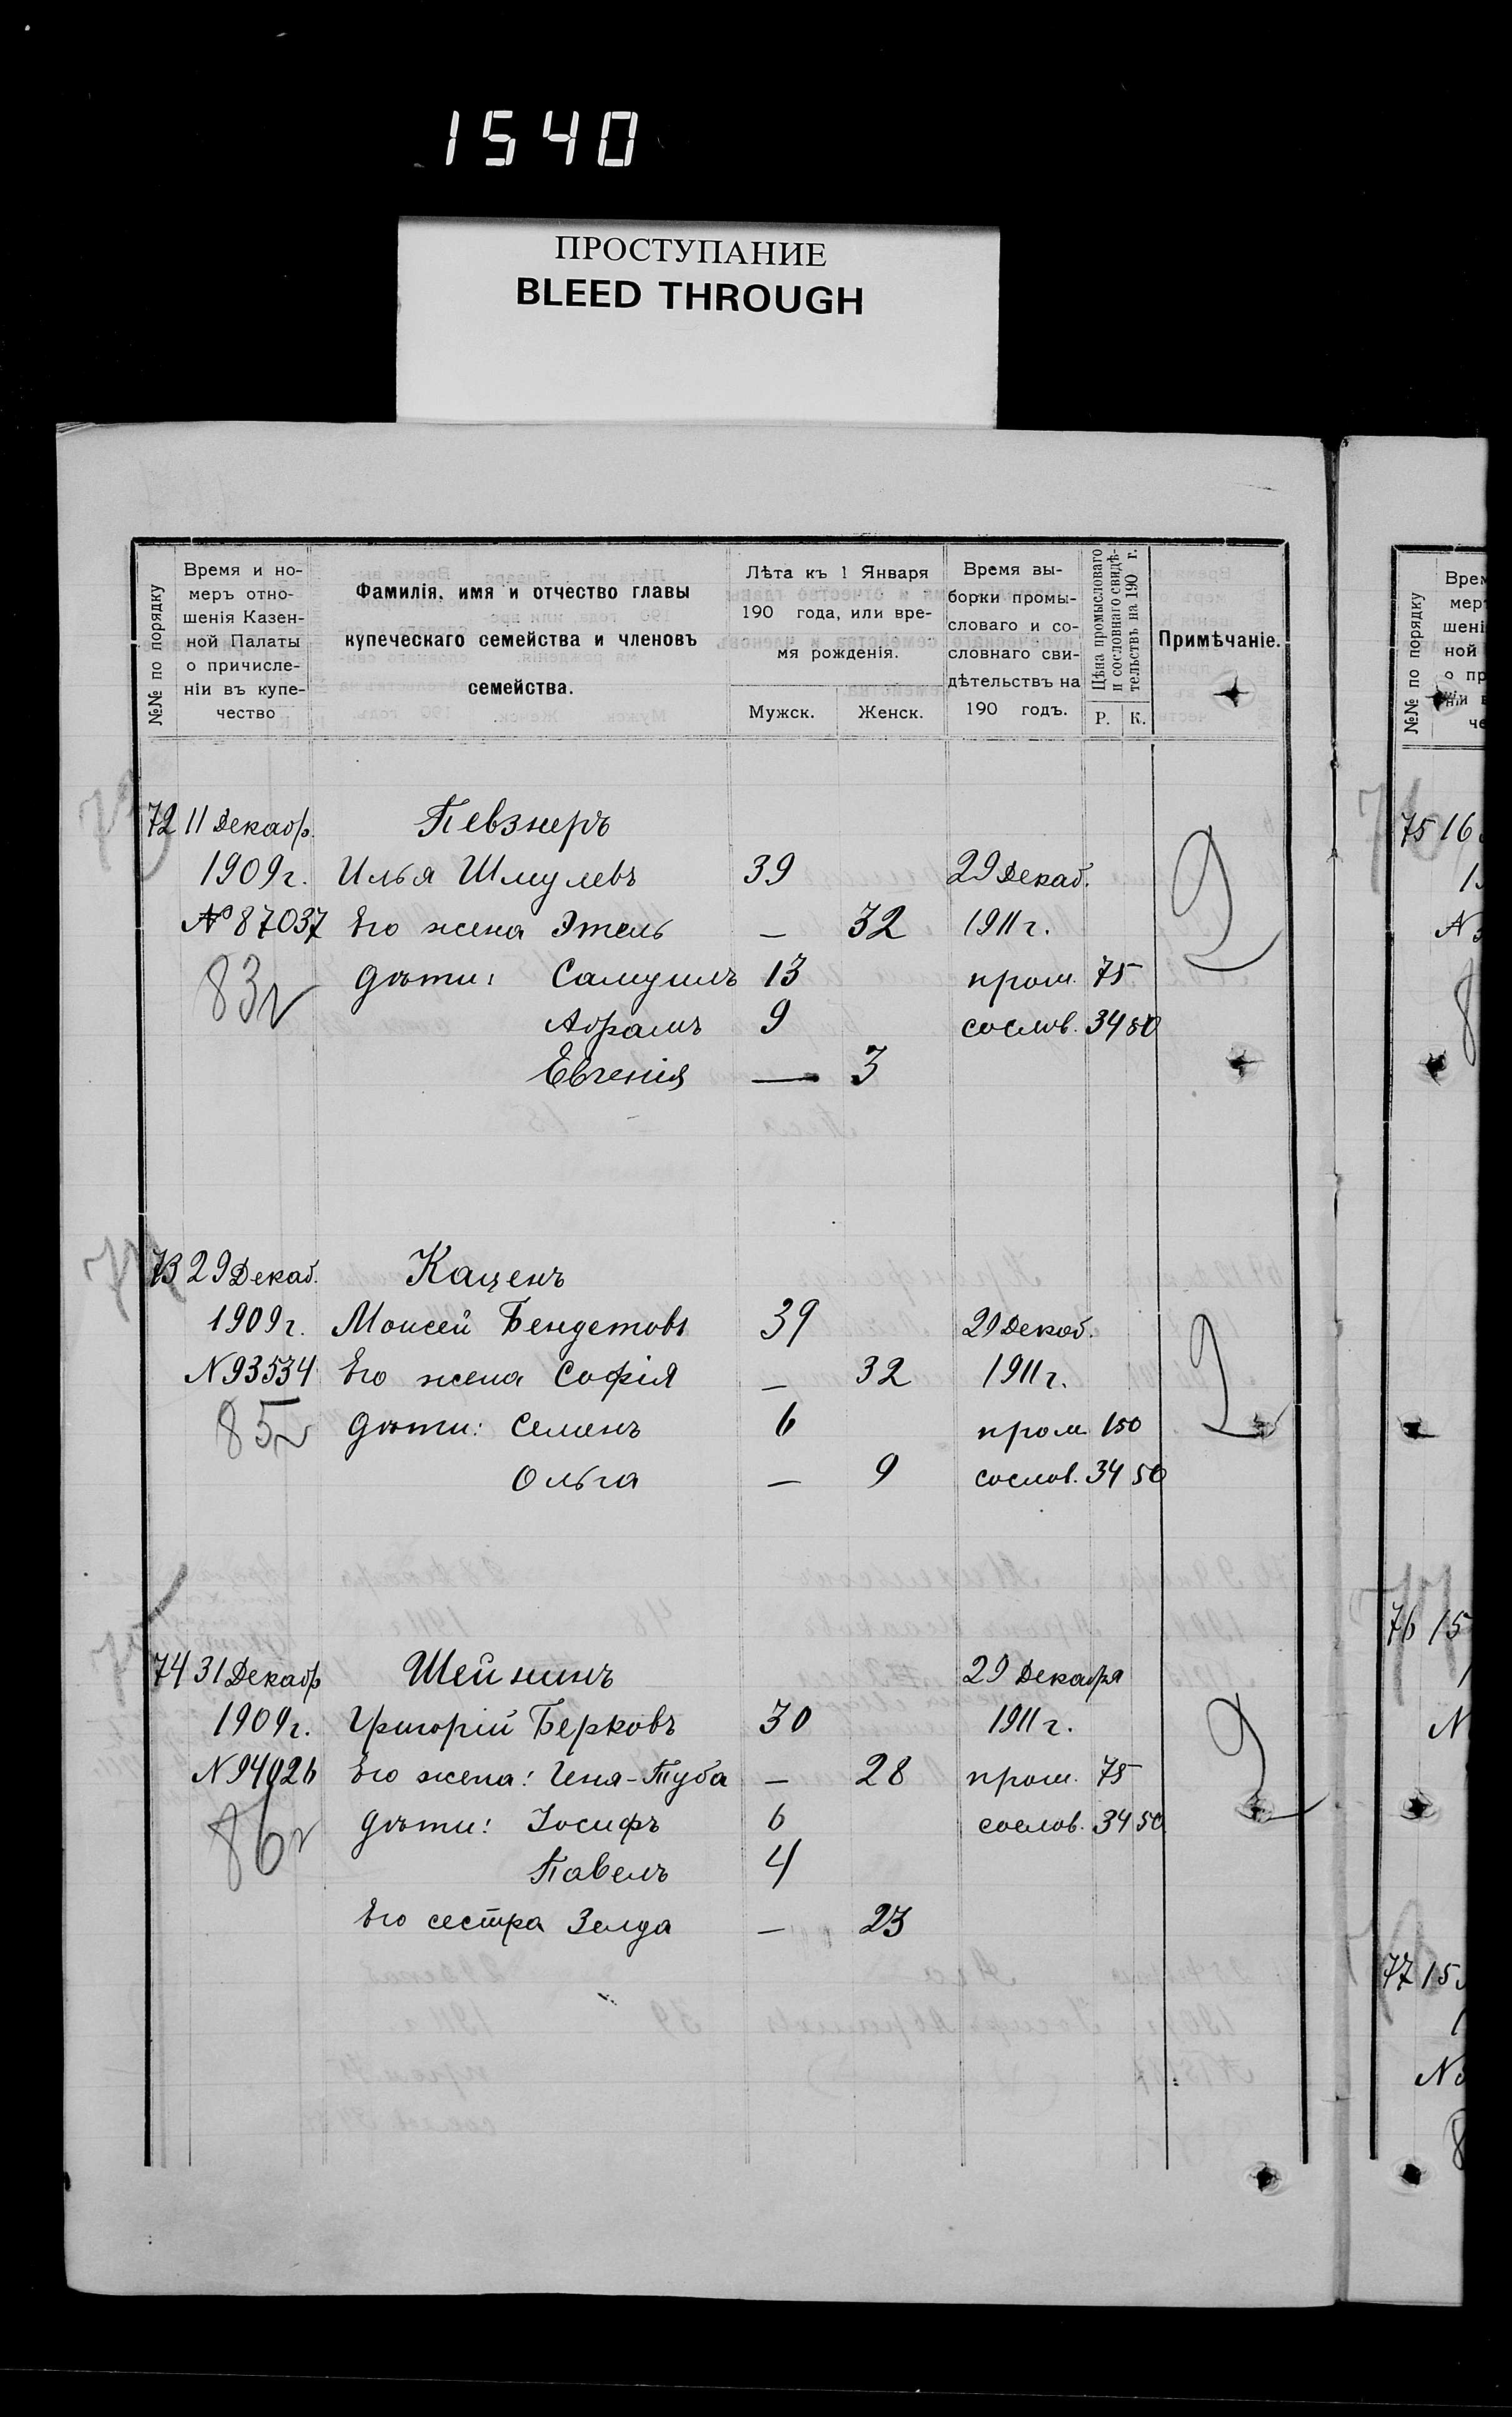 1540
ПРОСТУПАНИЕ
BLEED THROUGH
№№ по порядку
Время и но-
меръ отно-
шенія Казен-
ной Палаты
о причисле-
ніи въ купе-
чество
Фамилія, имя и отчество главы
купеческаго семейства и членовъ
семейства.
Лѣта къ 1 Января
190 года, или вре-
мя рожденія.
Мужск. Женск.
Время вы-
борки промы-
словаго и со-
словнаго сви-
дѣтельствъ на
190 годъ.
Цѣна промысловаго
и сословнаго свидѣ-
тельствъ на 190 г.
Р. К.
Примѣчаніе.
72 11 Декабр. Певзнеръ
1909 г. Илья Шмулевъ 39 29 Декаб.
№ 87037 Его жена Этель — 32 1911 г.
83 дѣти: Самуилъ 13 пром. 75
Абрамъ 9 сослов. 34 50
Евгенія — 3
73 29 Декаб. Каценъ
1909 г. Моисей Бендетовъ 39 29 Декаб.
N 93534 Его жена Софія — 32 1911 г.
85 дѣти: Семенъ 6 пром 150
Ольга — 9 сослов. 34 50
74 31 Декабр Шейнинъ 29 Декабря
1909 г. Григорій Берковъ 30 1911 г.
N 94026 Его жена: Геня-Туба — 28 пром. 75
86 дѣти: Іосифъ 6 сослов. 34 50
Павелъ 4
Его сестра Зелда — 23
№№ по порядку
75 16
76 15
77 15